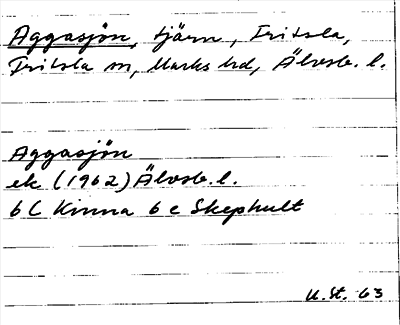 Aggasjön, tjärn, Fritsla,
Fritsla sn, Marks hd, Älvsb. l.
Aggasjön
ek (1962) Älvsb. l.
6C Kinna 6e Skephult
U. St. 63